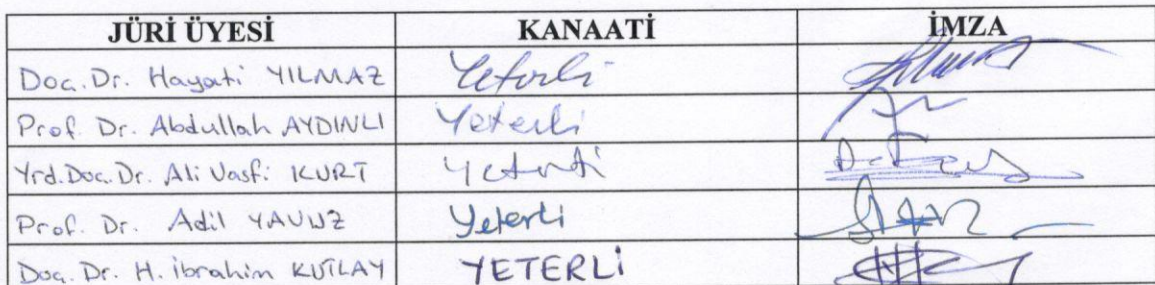 JÜRİ ÜYESİ KANAATİ İMZA
Doç. Dr. Hayati YILMAZ Yeterli
Prof. Dr. Abdullah AYDINLI Yeterli
Yrd. Doç. Dr. Ali Vasfi KURT Yeterli
Prof. Dr. Adil YAVUZ Yeterli
Doç. Dr. H. İbrahim KUTLAY YETERLİ